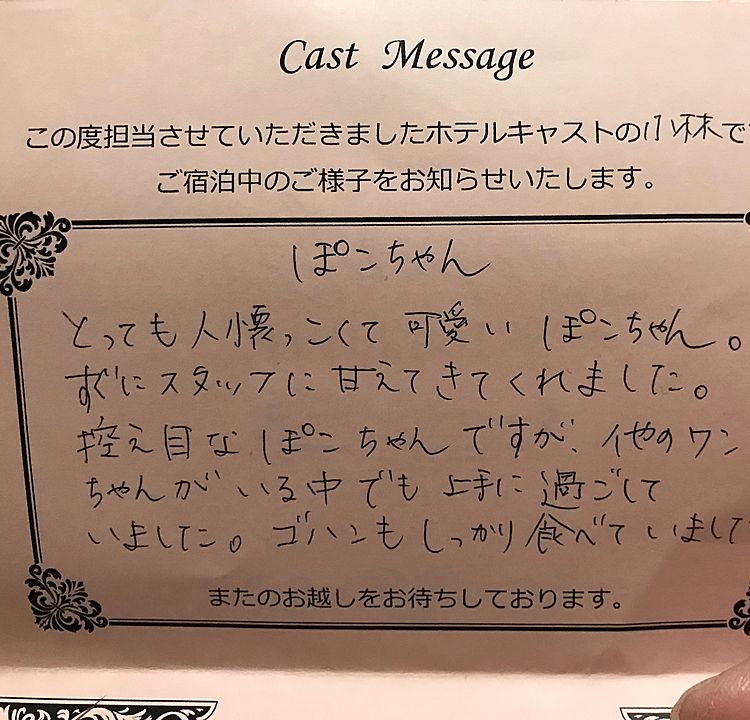 Cast Message
この度担当させていただきましたホテルキャストの小林で
ご宿泊中のご様子をお知らせいたします。
ぽこちゃん
とっても人懐っこくて可愛いぽこちゃん。
すぐにスタッフに甘えてきてくれました。
控え目なぽこちゃんですが、他のワン
ちゃんがいる中でも上手に過ごして
いました。ゴハンもしっかり食べていまして
またのお越しをお待ちしております。